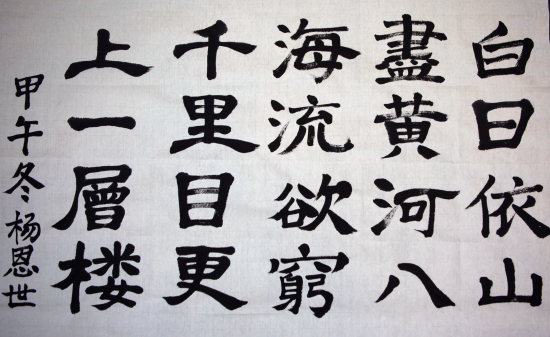 白日依山
盡黄河八
海流欲窮
千里目更
上一層楼
甲午冬杨恩世